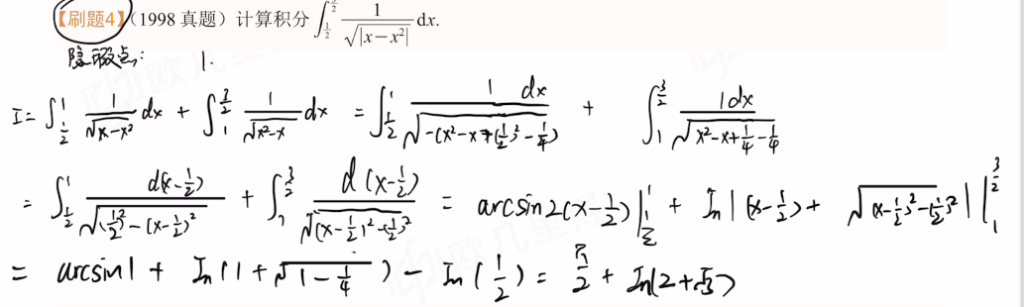 【刷题4】(1998 真题) 计算积分 ∫_{1/2}^{3/2} 1/√|x−x²| dx.
隐瑕点: 1.
I = ∫_{1/2}^{1} 1/√(x−x²) dx + ∫_{1}^{3/2} 1/√(x²−x) dx = ∫_{1/2}^{1} 1 dx/√(−(x²−x+(1/2)²−1/4)) + ∫_{1}^{3/2} 1dx/√(x²−x+1/4−1/4)
= ∫_{1/2}^{1} d(x−1/2)/√((1/2)²−(x−1/2)²) + ∫_{1}^{3/2} d(x−1/2)/√((x−1/2)²−(1/2)²) = arcsin2(x−1/2)|_{1/2}^{1} + ln|(x−1/2)+√((x−1/2)²−(1/2)²)||_{1}^{3/2}
= arcsin1 + ln(1+√(1−1/4)) − ln(1/2) = π/2 + ln(2+√3)